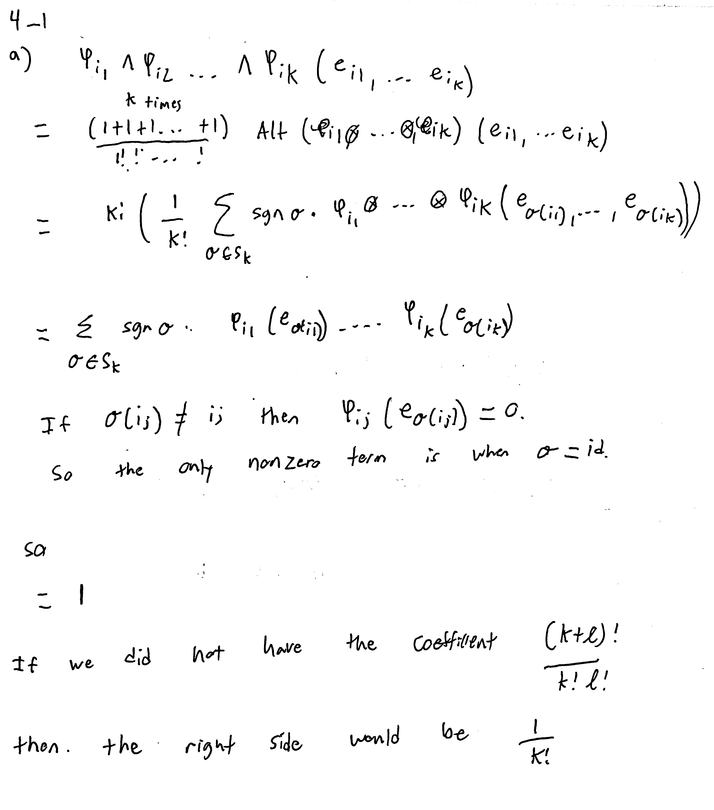 4-1
a) φ_{i_1} ∧ φ_{i_2} ... ∧ φ_{i_k} (e_{i_1}, ... e_{i_k})
k times
= (1+1+1... +1) / 1!1! ... ! Alt (φ_{i_1} ⊗ ... ⊗ φ_{i_k}) (e_{i_1}, ... e_{i_k})
= k! ( 1/k! Σ_{σ∈S_k} sgn σ · φ_{i_1} ⊗ ... ⊗ φ_{i_k} (e_{σ(i_1)}, ..., e_{σ(i_k)}))
= Σ_{σ∈S_k} sgn σ · φ_{i_1} (e_{σ(i_1)}) .... φ_{i_k} (e_{σ(i_k)})
If σ(i_j) ≠ i_j then φ_{i_j} (e_{σ(i_j)}) = 0.
So the only nonzero term is when σ = id.
so
= 1
If we did not have the coefficent (k+l)! / k! l!
then. the right side would be 1/k!